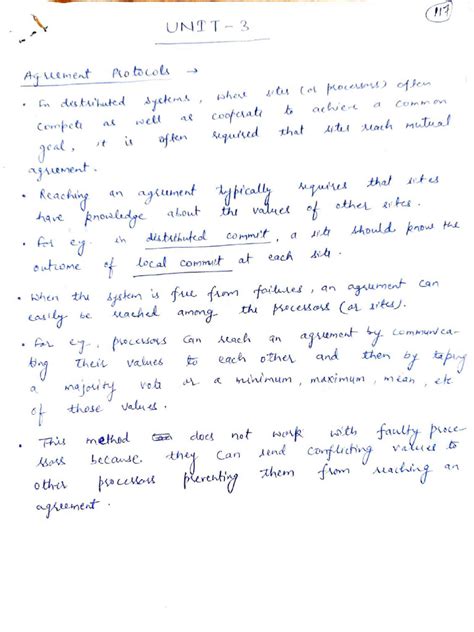 117
UNIT-3
Agreement Protocols →
• In distributed systems, where sites (or processors) often
compete as well as cooperate to achieve a common
goal, it is often required that sites reach mutual
agreement.
• Reaching an agreement typically requires that sites
have knowledge about the values of other sites.
• For eg. in distributed commit, a site should know the
outcome of local commit at each site.
• When the system is free from failures, an agreement can
easily be reached among the processors (or sites).
• For eg., processors can reach an agreement by communica-
ting their values to each other and then by taking
a majority vote or a minimum, maximum, mean, etc
of those values.
• This method does not work with faulty proce-
ssors because they can send conflicting values to
other processors preventing them from reaching an
agreement.